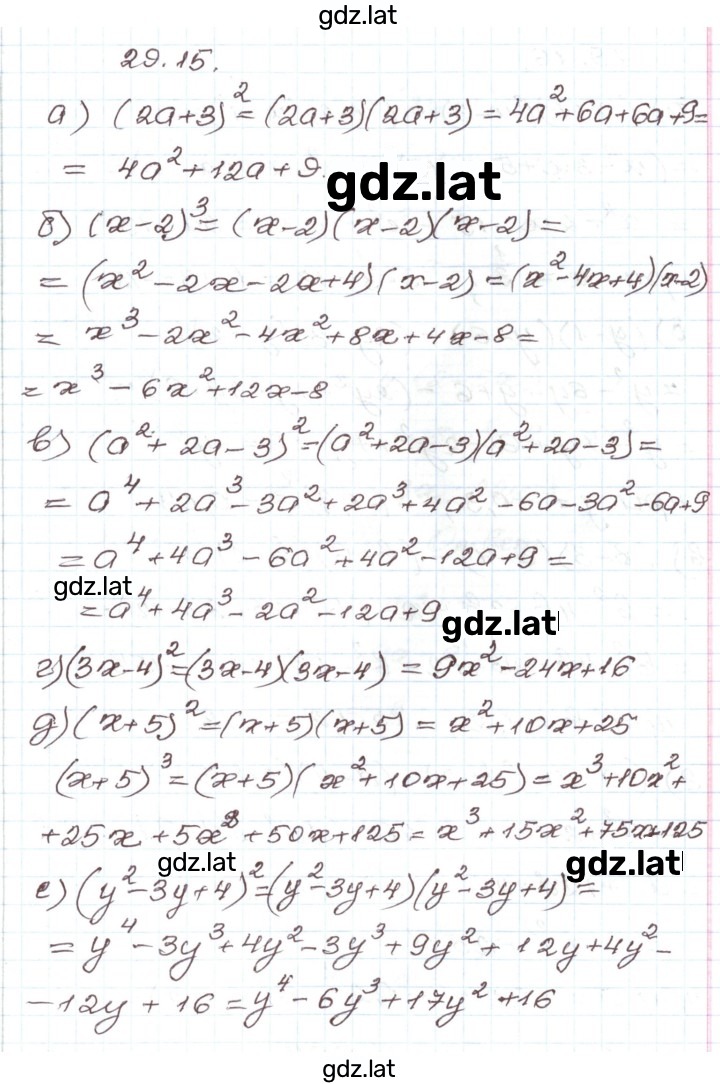 gdz.lat
29.15.
а) (2a+3)² = (2a+3)(2a+3) = 4a²+6a+6a+9=
= 4a²+12a+9.
gdz.lat
б) (x-2)³ = (x-2)(x-2)(x-2) =
= (x²-2x-2x+4)(x-2) = (x²-4x+4)(x-2)
= x³-2x²-4x²+8x+4x-8=
= x³-6x²+12x-8
в) (a²+2a-3)² = (a²+2a-3)(a²+2a-3) =
= a⁴+2a³-3a²+2a³+4a²-6a-3a²-6a+9
= a⁴+4a³-6a²+4a²-12a+9 =
gdz.lat
= a⁴+4a³-2a²-12a+9
gdz.lat
г) (3x-4)² = (3x-4)(3x-4) = 9x²-24x+16
д) (x+5)² = (x+5)(x+5) = x²+10x+25
(x+5)³ = (x+5)(x²+10x+25) = x³+10x²+
+25x+5x²+50x+125 = x³+15x²+75x+125
gdz.lat
gdz.lat
е) (y²-3y+4)² = (y²-3y+4)(y²-3y+4) =
= y⁴-3y³+4y²-3y³+9y²+12y+4y²-
-12y+16 = y⁴-6y³+17y²+16
gdz.lat